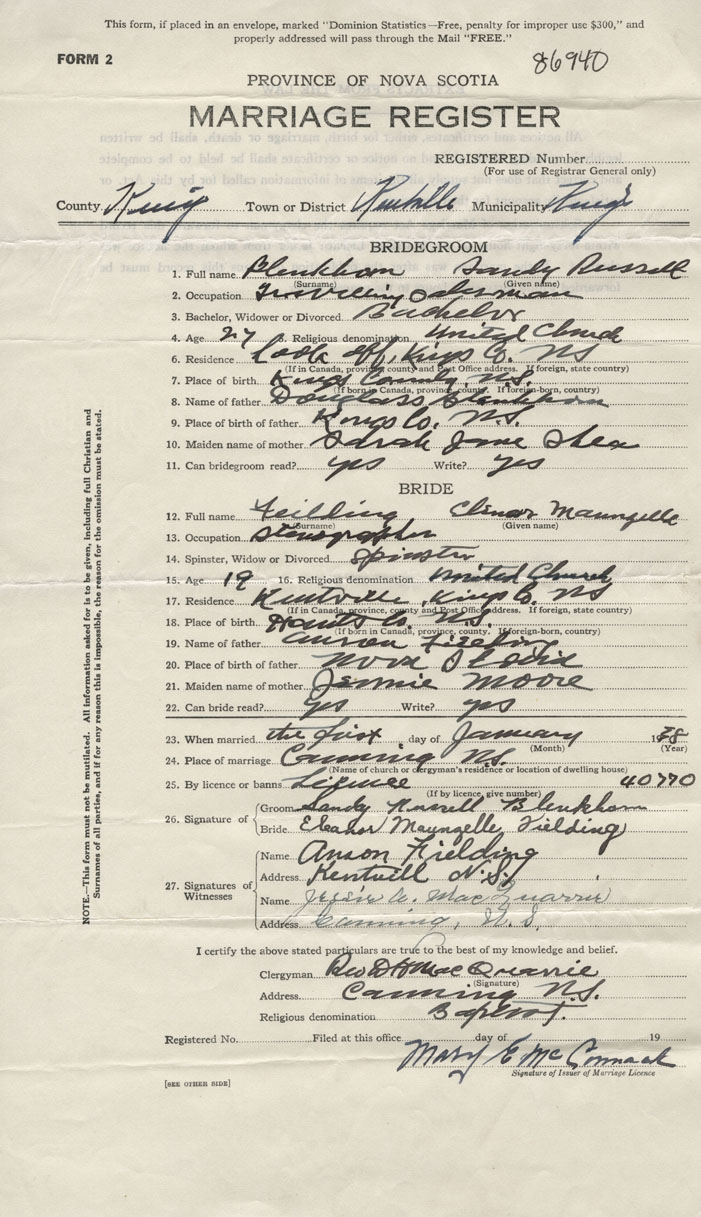 This form, if placed in an envelope, marked "Dominion Statistics—Free, penalty for improper use $300," and
properly addressed will pass through the Mail "FREE."
FORM 2
86940
PROVINCE OF NOVA SCOTIA
MARRIAGE REGISTER
REGISTERED Number
(For use of Registrar General only)
County Kings Town or District Kentville Municipality Kings
BRIDEGROOM
1. Full name Blenkhorn Sandy Russell
(Surname) (Given name)
2. Occupation Travelling Salesman
3. Bachelor, Widower or Divorced Bachelor
4. Age 27 5. Religious denomination United Church
6. Residence Look off, Kings Co. NS
(If in Canada, province, county and Post Office address. If foreign, state country)
7. Place of birth Kings County, N.S.
(If born in Canada, province, county. If foreign-born, country)
8. Name of father Douglass Blenkhorn
9. Place of birth of father Kings Co. N.S.
10. Maiden name of mother Sarah Jane Shea
11. Can bridegroom read? yes Write? yes
BRIDE
12. Full name Feilding Elenor Maungelle
(Surname) (Given name)
13. Occupation Stenographer
14. Spinster, Widow or Divorced Spinster
15. Age 19 16. Religious denomination United Church
17. Residence Kentville, Kings Co. NS
(If in Canada, province, county and Post Office address. If foreign, state country)
18. Place of birth Hants Co. N.S.
(If born in Canada, province, county. If foreign-born, country)
19. Name of father Anson Fielding
20. Place of birth of father Nova Scotia
21. Maiden name of mother Jennie Moore
22. Can bride read? yes Write? yes
23. When married the first day of January 1938
(Month) (Year)
24. Place of marriage Canning N.S.
(Name of church or clergyman's residence or location of dwelling house)
25. By licence or banns Licence 40770
(If by licence, give number)
26. Signature of
Groom Sandy Russell Blenkhorn
Bride Eleanor Maungelle Fielding
27. Signatures of Witnesses
Name Anson Fielding
Address Kentvill N.S.
Name Jessie A. MacQuarrie
Address Canning, N.S.
I certify the above stated particulars are true to the best of my knowledge and belief.
Clergyman Rev D H MacQuarrie
(Signature)
Address Canning N.S.
Religious denomination Baptist.
Registered No. Filed at this office day of 19
Mary E McCormack
Signature of Issuer of Marriage Licence
[SEE OTHER SIDE]
NOTE.—This form must not be mutilated. All information asked for is to be given, including full Christian and
Surnames of all parties, and if for any reason this is impossible, the reason for the omission must be stated.